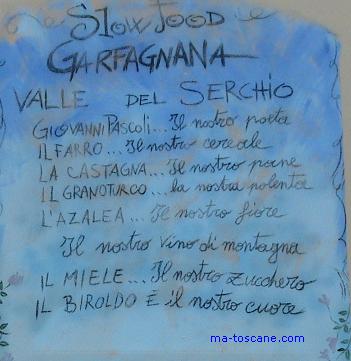 Slow Food
GARFAGNANA
VALLE DEL SERCHIO
GIOVANNI PASCOLI... Il nostro poeta
IL FARRO... Il nostro cereale
LA CASTAGNA... Il nostro pane
IL GRANOTURCO... la nostra polenta
L'AZALEA... Il nostro fiore
Il nostro vino di montagna
IL MIELE... Il nostro zucchero
IL BIROLDO È il nostro cuore
ma-toscane.com